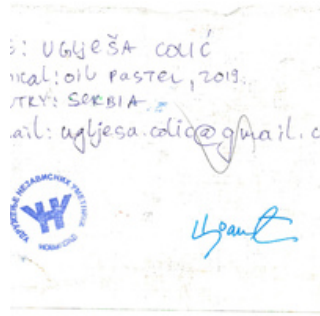 : UGLJEŠA COLIĆ
ical: OIL PASTEL, 2019.
NTRY: SERBIA
ail: ugljesa.colic@gmail.c
УДРУЖЕЊЕ НЕЗАВИСНИХ УМЕТНИКА
НОВИ САД